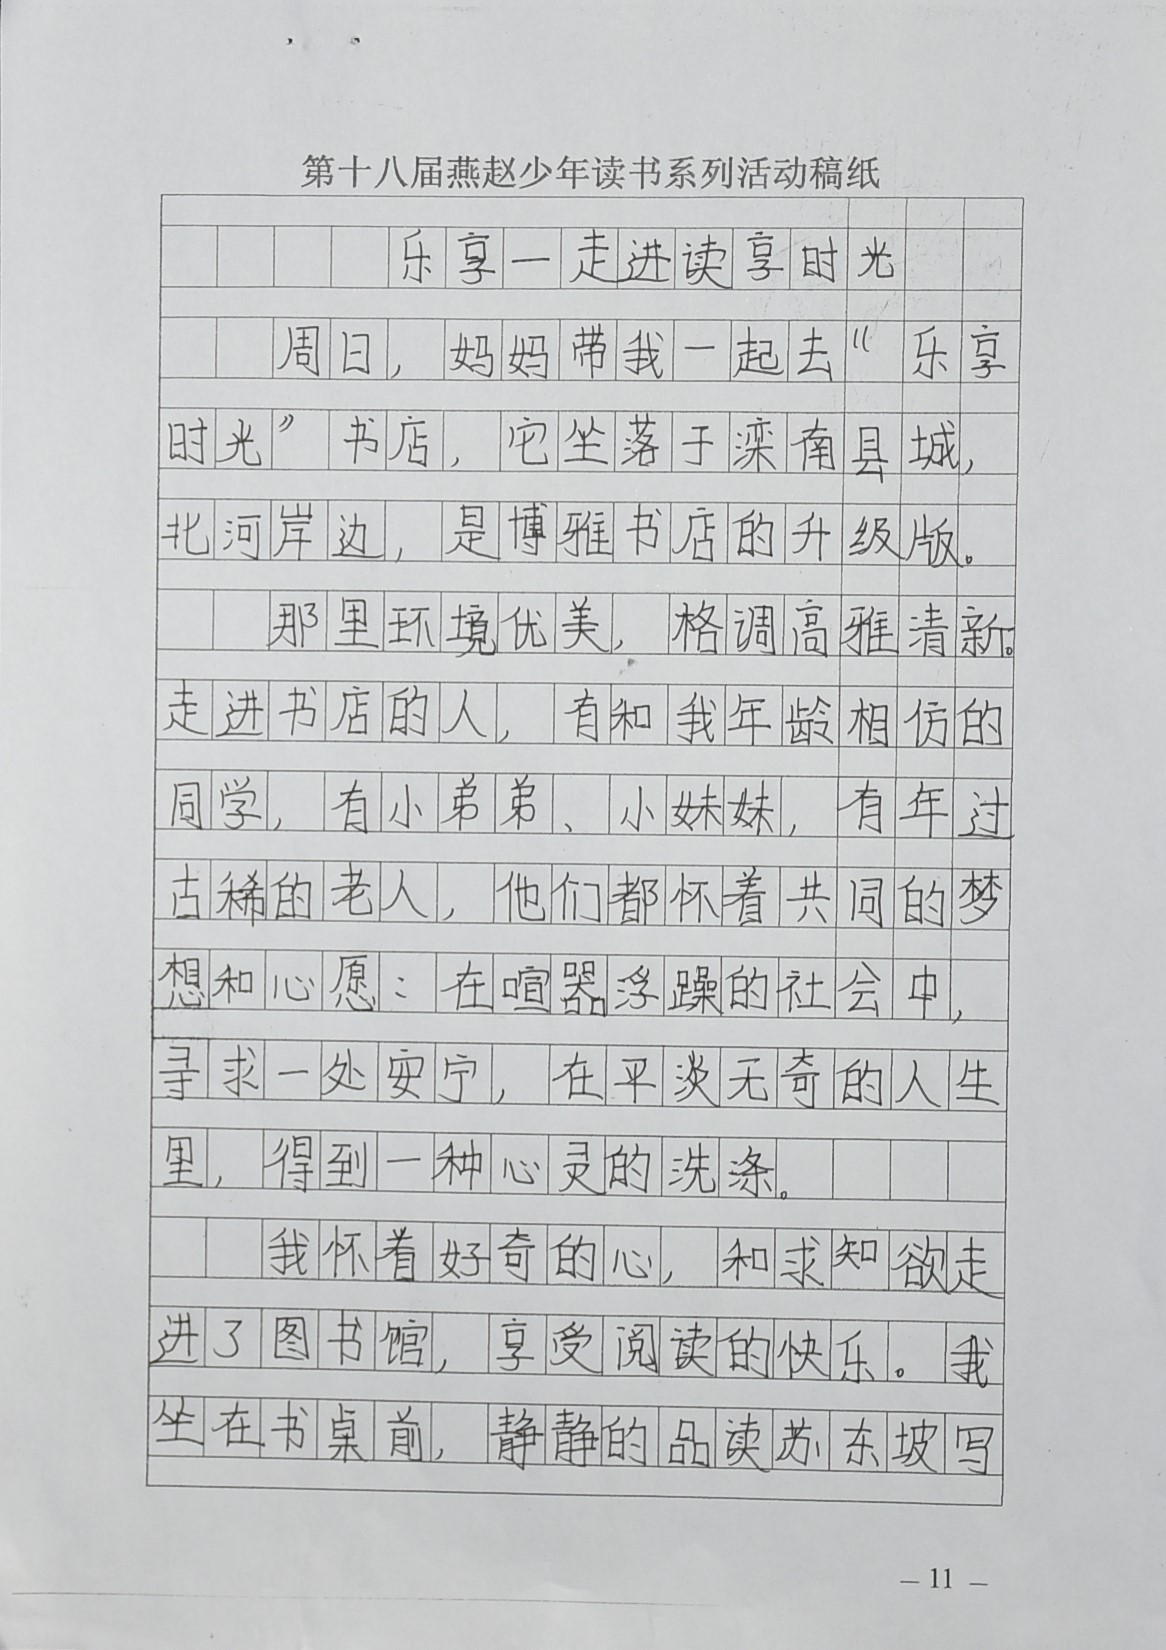 第十八届燕赵少年读书系列活动稿纸
乐享一走进读享时光
周日，妈妈带我一起去“乐享
时光”书店，它坐落于滦南县城，
北河岸边，是博雅书店的升级版。
那里环境优美，格调高雅清新。
走进书店的人，有和我年龄相仿的
同学，有小弟弟、小妹妹，有年过
古稀的老人，他们都怀着共同的梦
想和心愿：在喧嚣浮躁的社会中，
寻求一处安宁，在平淡无奇的人生
里，得到一种心灵的洗涤。
我怀着好奇的心，和求知欲走
进了图书馆，享受阅读的快乐。我
坐在书桌前，静静的品读苏东坡写
— 11 —